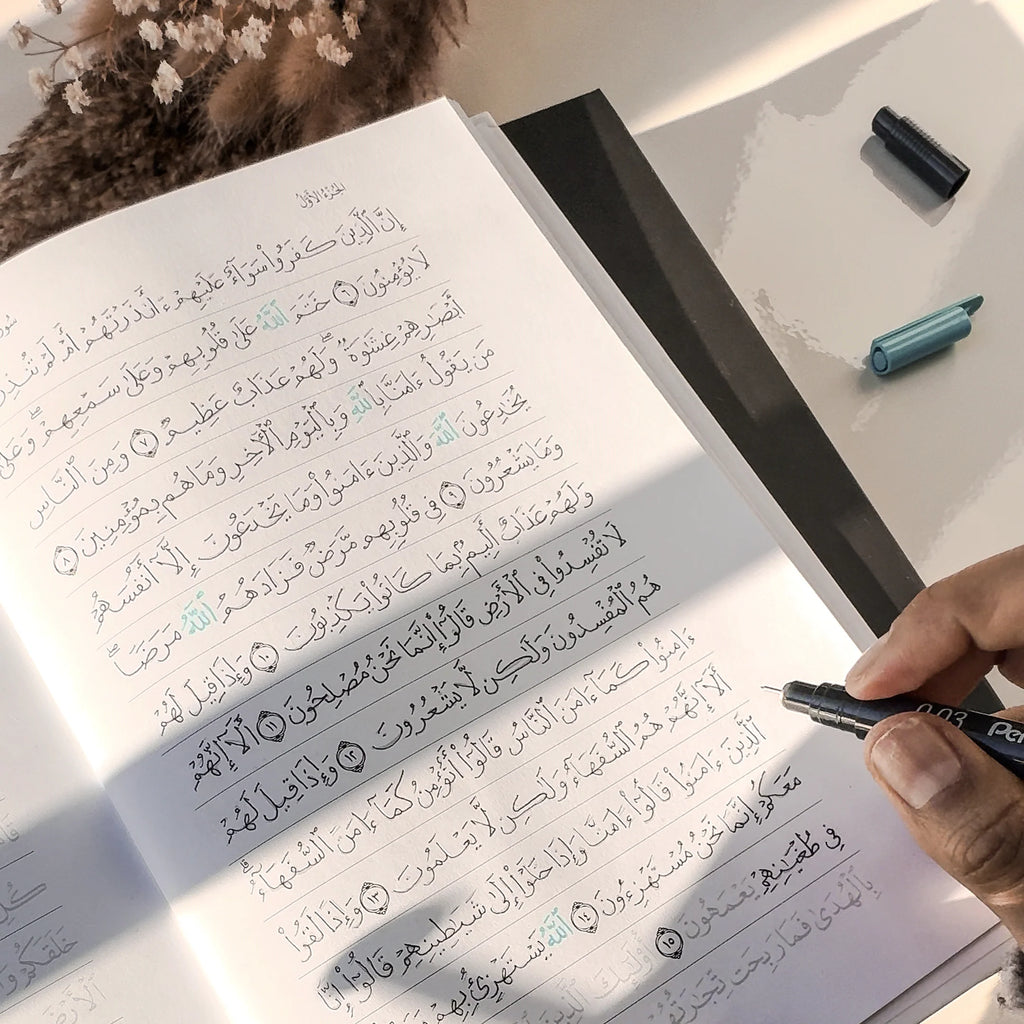 الجزء الأول
إِنَّ ٱلَّذِينَ كَفَرُوا۟ سَوَآءٌ عَلَيْهِمْ ءَأَنذَرْتَهُمْ أَمْ لَمْ تُنذِرْ
لَا يُؤْمِنُونَ ٦ خَتَمَ ٱللَّهُ عَلَىٰ قُلُوبِهِمْ وَعَلَىٰ سَمْعِهِمْ ۖ وَعَلَىٰ
أَبْصَٰرِهِمْ غِشَٰوَةٌ ۖ وَلَهُمْ عَذَابٌ عَظِيمٌ ٧ وَمِنَ ٱلنَّاسِ
مَن يَقُولُ ءَامَنَّا بِٱللَّهِ وَبِٱلْيَوْمِ ٱلْـَٔاخِرِ وَمَا هُم بِمُؤْمِنِينَ ٨
يُخَٰدِعُونَ ٱللَّهَ وَٱلَّذِينَ ءَامَنُوا۟ وَمَا يَخْدَعُونَ إِلَّآ أَنفُسَهُمْ
وَمَا يَشْعُرُونَ ٩ فِى قُلُوبِهِم مَّرَضٌ فَزَادَهُمُ ٱللَّهُ مَرَضًا ۖ
وَلَهُمْ عَذَابٌ أَلِيمٌۢ بِمَا كَانُوا۟ يَكْذِبُونَ ١٠ وَإِذَا قِيلَ لَهُمْ
لَا تُفْسِدُوا۟ فِى ٱلْأَرْضِ قَالُوٓا۟ إِنَّمَا نَحْنُ مُصْلِحُونَ ١١ أَلَآ إِنَّهُمْ
هُمُ ٱلْمُفْسِدُونَ وَلَٰكِن لَّا يَشْعُرُونَ ١٢ وَإِذَا قِيلَ لَهُمْ
ءَامِنُوا۟ كَمَآ ءَامَنَ ٱلنَّاسُ قَالُوٓا۟ أَنُؤْمِنُ كَمَآ ءَامَنَ ٱلسُّفَهَآءُ ۗ
أَلَآ إِنَّهُمْ هُمُ ٱلسُّفَهَآءُ وَلَٰكِن لَّا يَعْلَمُونَ ١٣ وَإِذَا لَقُوا۟
ٱلَّذِينَ ءَامَنُوا۟ قَالُوٓا۟ ءَامَنَّا وَإِذَا خَلَوْا۟ إِلَىٰ شَيَٰطِينِهِمْ قَالُوٓا۟ إِنَّا
مَعَكُمْ إِنَّمَا نَحْنُ مُسْتَهْزِءُونَ ١٤ ٱللَّهُ يَسْتَهْزِئُ بِهِمْ
فِى طُغْيَٰنِهِمْ يَعْمَهُونَ ١٥ أُو۟لَٰٓئِكَ ٱلَّذِينَ
بِٱلْهُدَىٰ فَمَا رَبِحَت تِّجَٰرَتُهُمْ
0.03 Pen